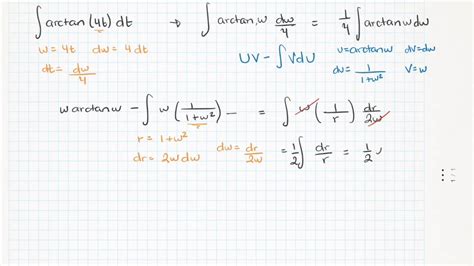 ∫ arctan(4t) dt → ∫ arctan w dw/4 = 1/4 ∫ arctan w dw
w = 4t dw = 4 dt UV − ∫ V dU u = arctan w dv = dw
dt = dw/4 du = 1/(1+w²) V = w
w arctan w − ∫ w (1/(1+w²)) — = ∫ w (1/r) dr/2w
r = 1+w² dw = dr/2w = 1/2 ∫ dr/r = 1/2
dr = 2w dw